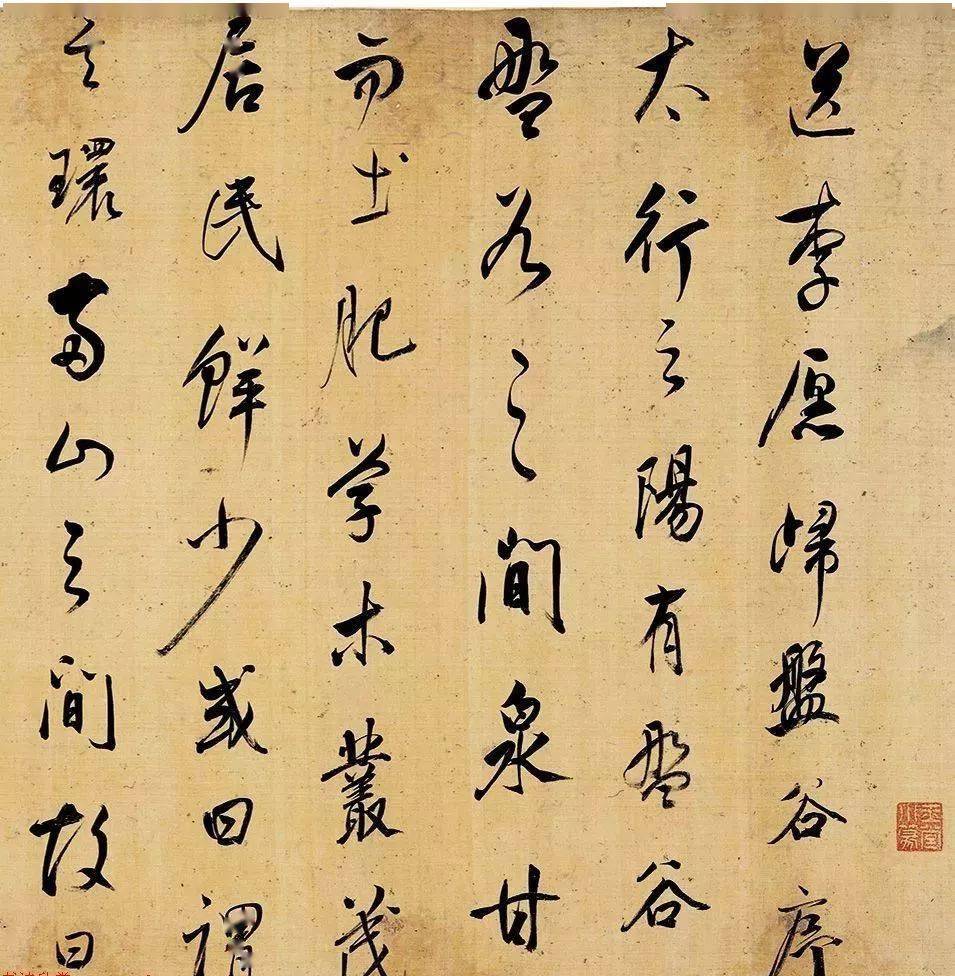 送李愿歸盤谷序
太行之陽有盤谷
盤谷之間泉甘
而土肥草木叢茂
居民鮮少或曰謂
其環兩山之間故曰